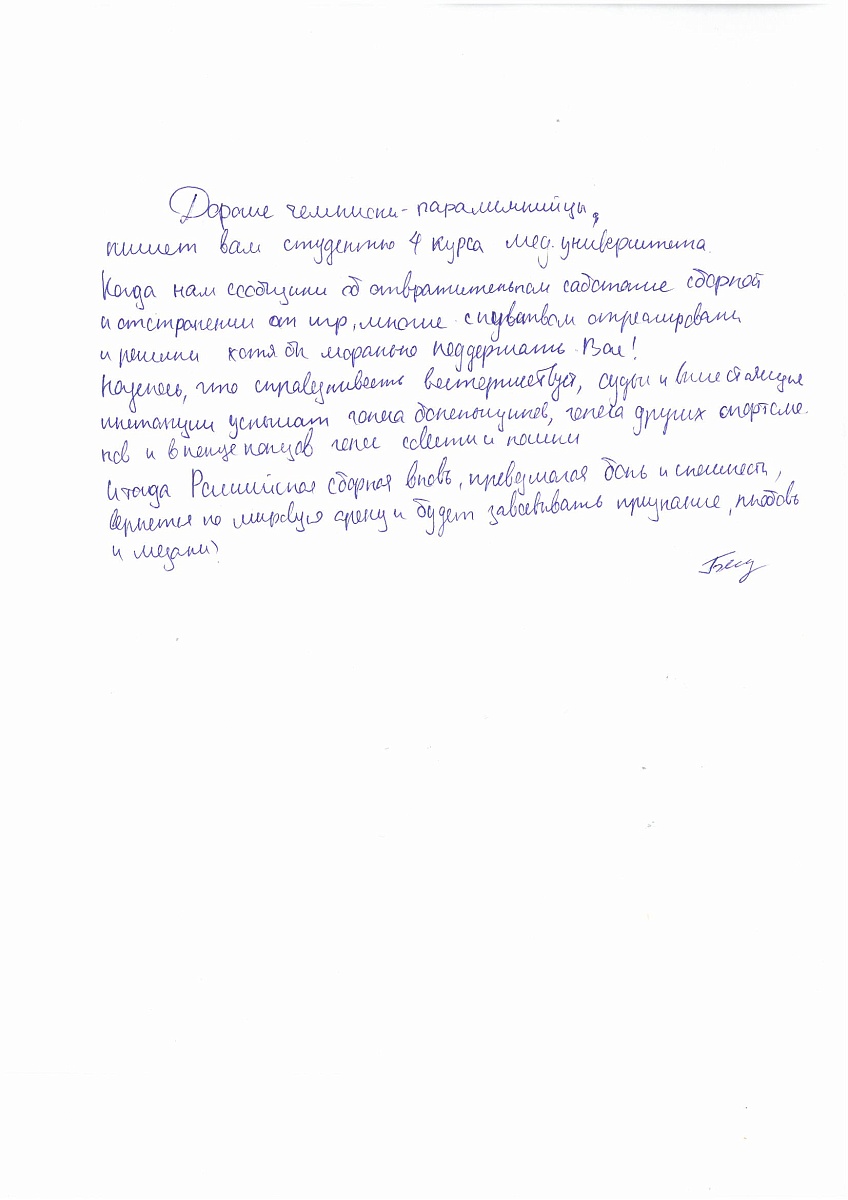 Дорогие чемпионы-паралимпийцы,
пишет вам студентка 4 курса мед. университета.
Когда нам сообщили об отвратительном сборной
и отстранении от игр, многие с чувством отреагировали
и решили хотя бы морально поддержать Вас!
Надеюсь, что справедливость восторжествует, судьи и вышестоящие
инстанции услышат голоса болельщиков, голоса других спортсме-
нов и в конце концов голос совести и
и тогда Российская сборная вновь, превозмогая боль и
вернется на мировую арену и будет завоевывать признание, любовь
и медали)